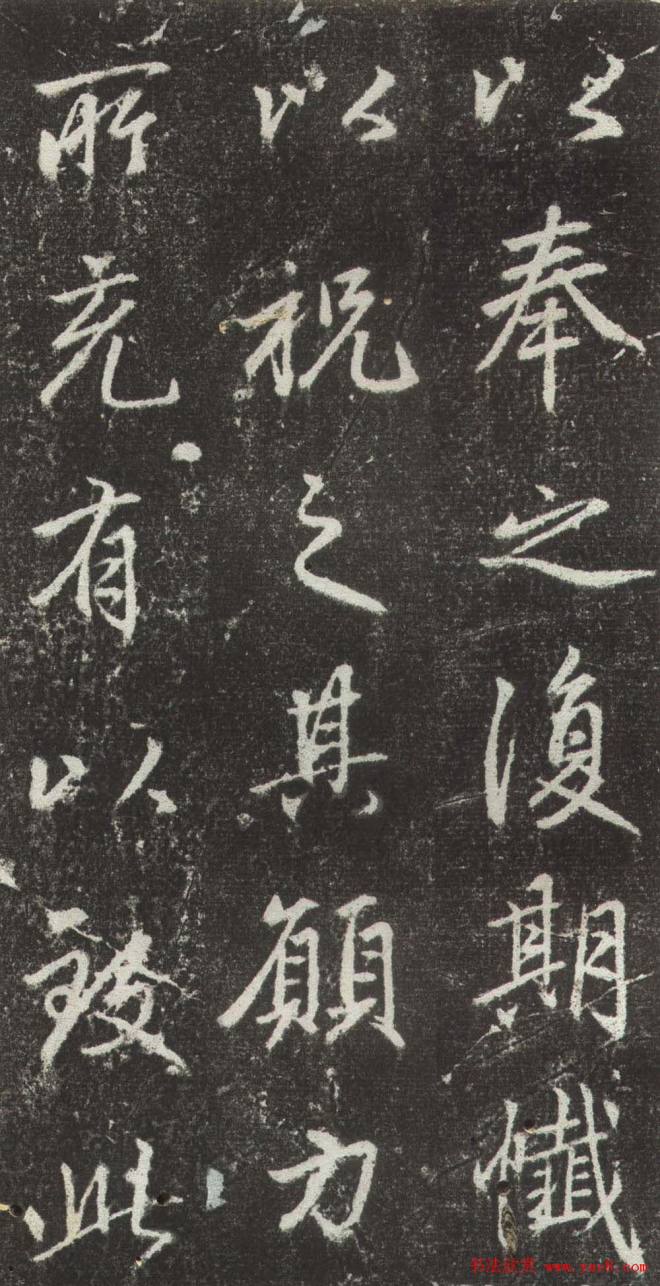 以奉之復期懺
以祝之其願力
所充有以致此
书法欣赏 www.yac8.com